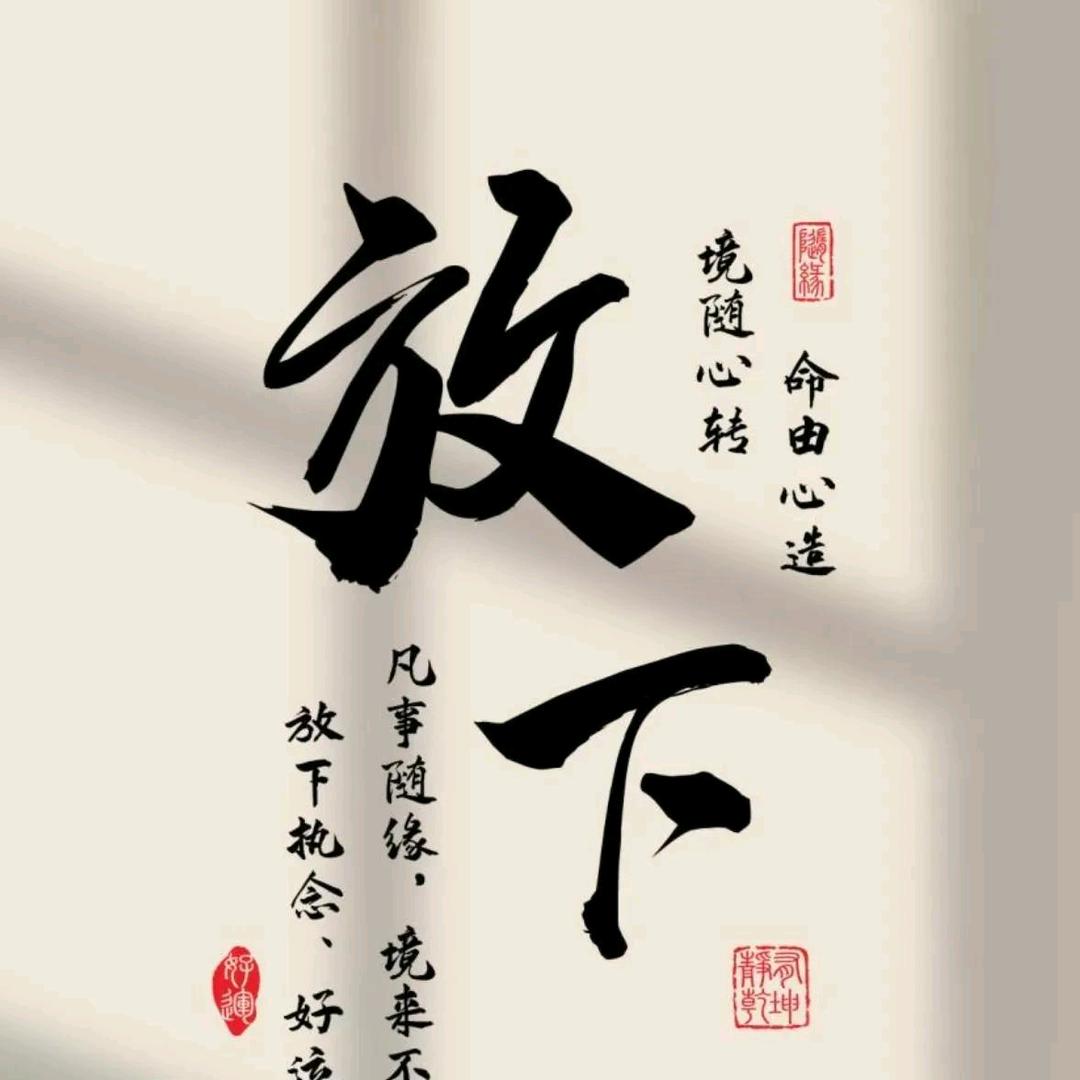 放下
随缘
命由心造
境随心转
凡事随�，境来不
放下执念、好运
静寻乾坤
好運